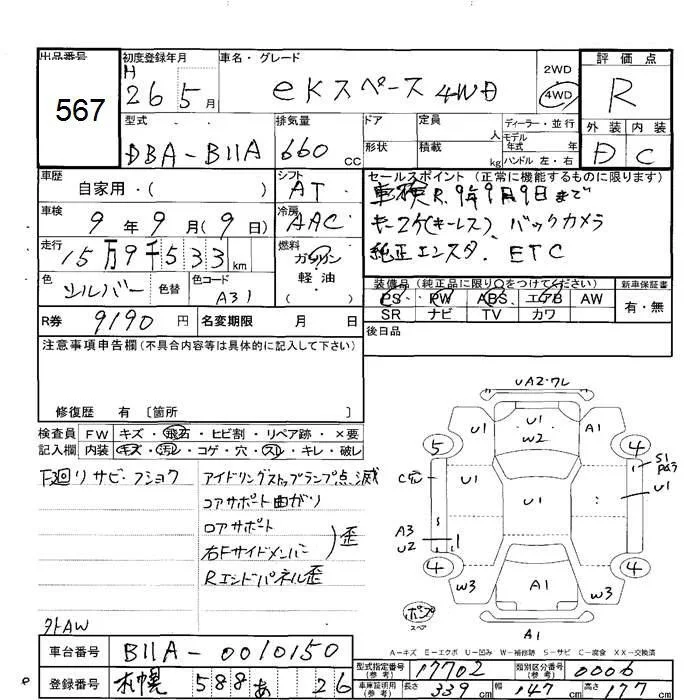 出品番号 初度登録年月 車名・グレード 2WD 4WD 評価点
567
H 26 5月 eKスペース 4WD R
型式 排気量 ドア 定員 人 ディーラー・並行 外装 内装
モデル年式 年式
DBA-B11A 660cc 形状 積載 kg ハンドル 左・右 D C
車歴 シフト セールスポイント(正常に機能するものに限ります)
自家用・( ) AT 車検R.9年9月9日まで
車検 9年9月(9日) 冷房 AAC キースケ(キーレス) バックカメラ
走行 15万9千533km 燃料 ガソリン・軽油 ( ) 純正エンスタ. ETC
色 シルバー 色替 色コード A31 装備品(純正品に限り○をつけてください) 新車保証書
PS PW ABS エアB AW 有・無
SR ナビ TV カワ
R券 9190円 名変期限 月 日 後日品
注意事項申告欄(不具合内容等は具体的に記入して下さい)
修復歴 有〔箇所
検査員 FW キズ・飛石・ヒビ割・リペア跡・×要
記入欄 内装 キズ・汚レ・コゲ・穴・スレ・キレ・破レ
下廻リサビ・フショク アイドリングストップランプ点滅
コアサポート曲がり
ロアサポート
右Fサイドメンバー 歪
Rエンドパネル歪
外AW
UA2・ワレ
U1
W2
A1
5
4
U1
S1
C穴
U1
U1
A3
U2
4
4
W3
A1
W3
スペア
A1
A-キズ E-エクボ U-凹み W-補修跡 S-サビ C-腐食 XX-交換済
車台番号 B11A-0010150
型式指定番号(参考) 17702 類別区分番号(参考) 0006
登録番号 札幌 588 あ 26
車庫証明用(参考) 長さ 339cm 幅 147cm 高さ 177cm